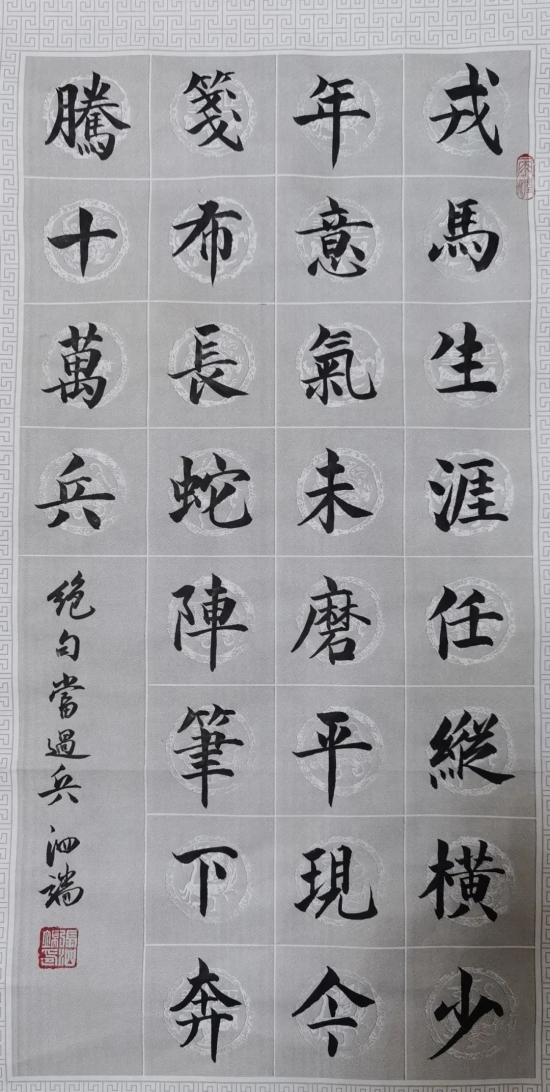 戎馬生涯任縱橫少
年意氣未磨平現今
箋布長蛇陣筆下奔
騰十萬兵
絕句當過兵 泗端